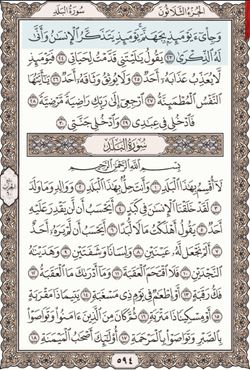 سورة البلد الجزء الثلاثون
وجاىء يومئذ بجهنم يومئذ يتذكر الإنسان وأنى
له الذكرى ٢٣ يقول ياليتنى قدمت لحياتى ٢٤ فيومئذ
لا يعذب عذابه أحد ٢٥ ولا يوثق وثاقه أحد ٢٦ ياأيتها
النفس المطمئنة ٢٧ ارجعى إلى ربك راضية مرضية ٢٨
فادخلى فى عبادى ٢٩ وادخلى جنتى ٣٠
سورة البلد
بسم الله الرحمن الرحيم
لا أقسم بهذا البلد ١ وأنت حل بهذا البلد ٢ ووالد وما ولد
٣ لقد خلقنا الإنسان فى كبد ٤ أيحسب أن لن يقدر عليه
أحد ٥ يقول أهلكت مالا لبدا ٦ أيحسب أن لم يره أحد
٧ ألم نجعل له عينين ٨ ولسانا وشفتين ٩ وهديناه
النجدين ١٠ فلا اقتحم العقبة ١١ وما أدراك ما العقبة ١٢
فك رقبة ١٣ أو إطعام فى يوم ذى مسغبة ١٤ يتيما ذا مقربة
١٥ أو مسكينا ذا متربة ١٦ ثم كان من الذين ءامنوا وتواصوا
بالصبر وتواصوا بالمرحمة ١٧ أولئك أصحاب الميمنة ١٨
٥٩٤